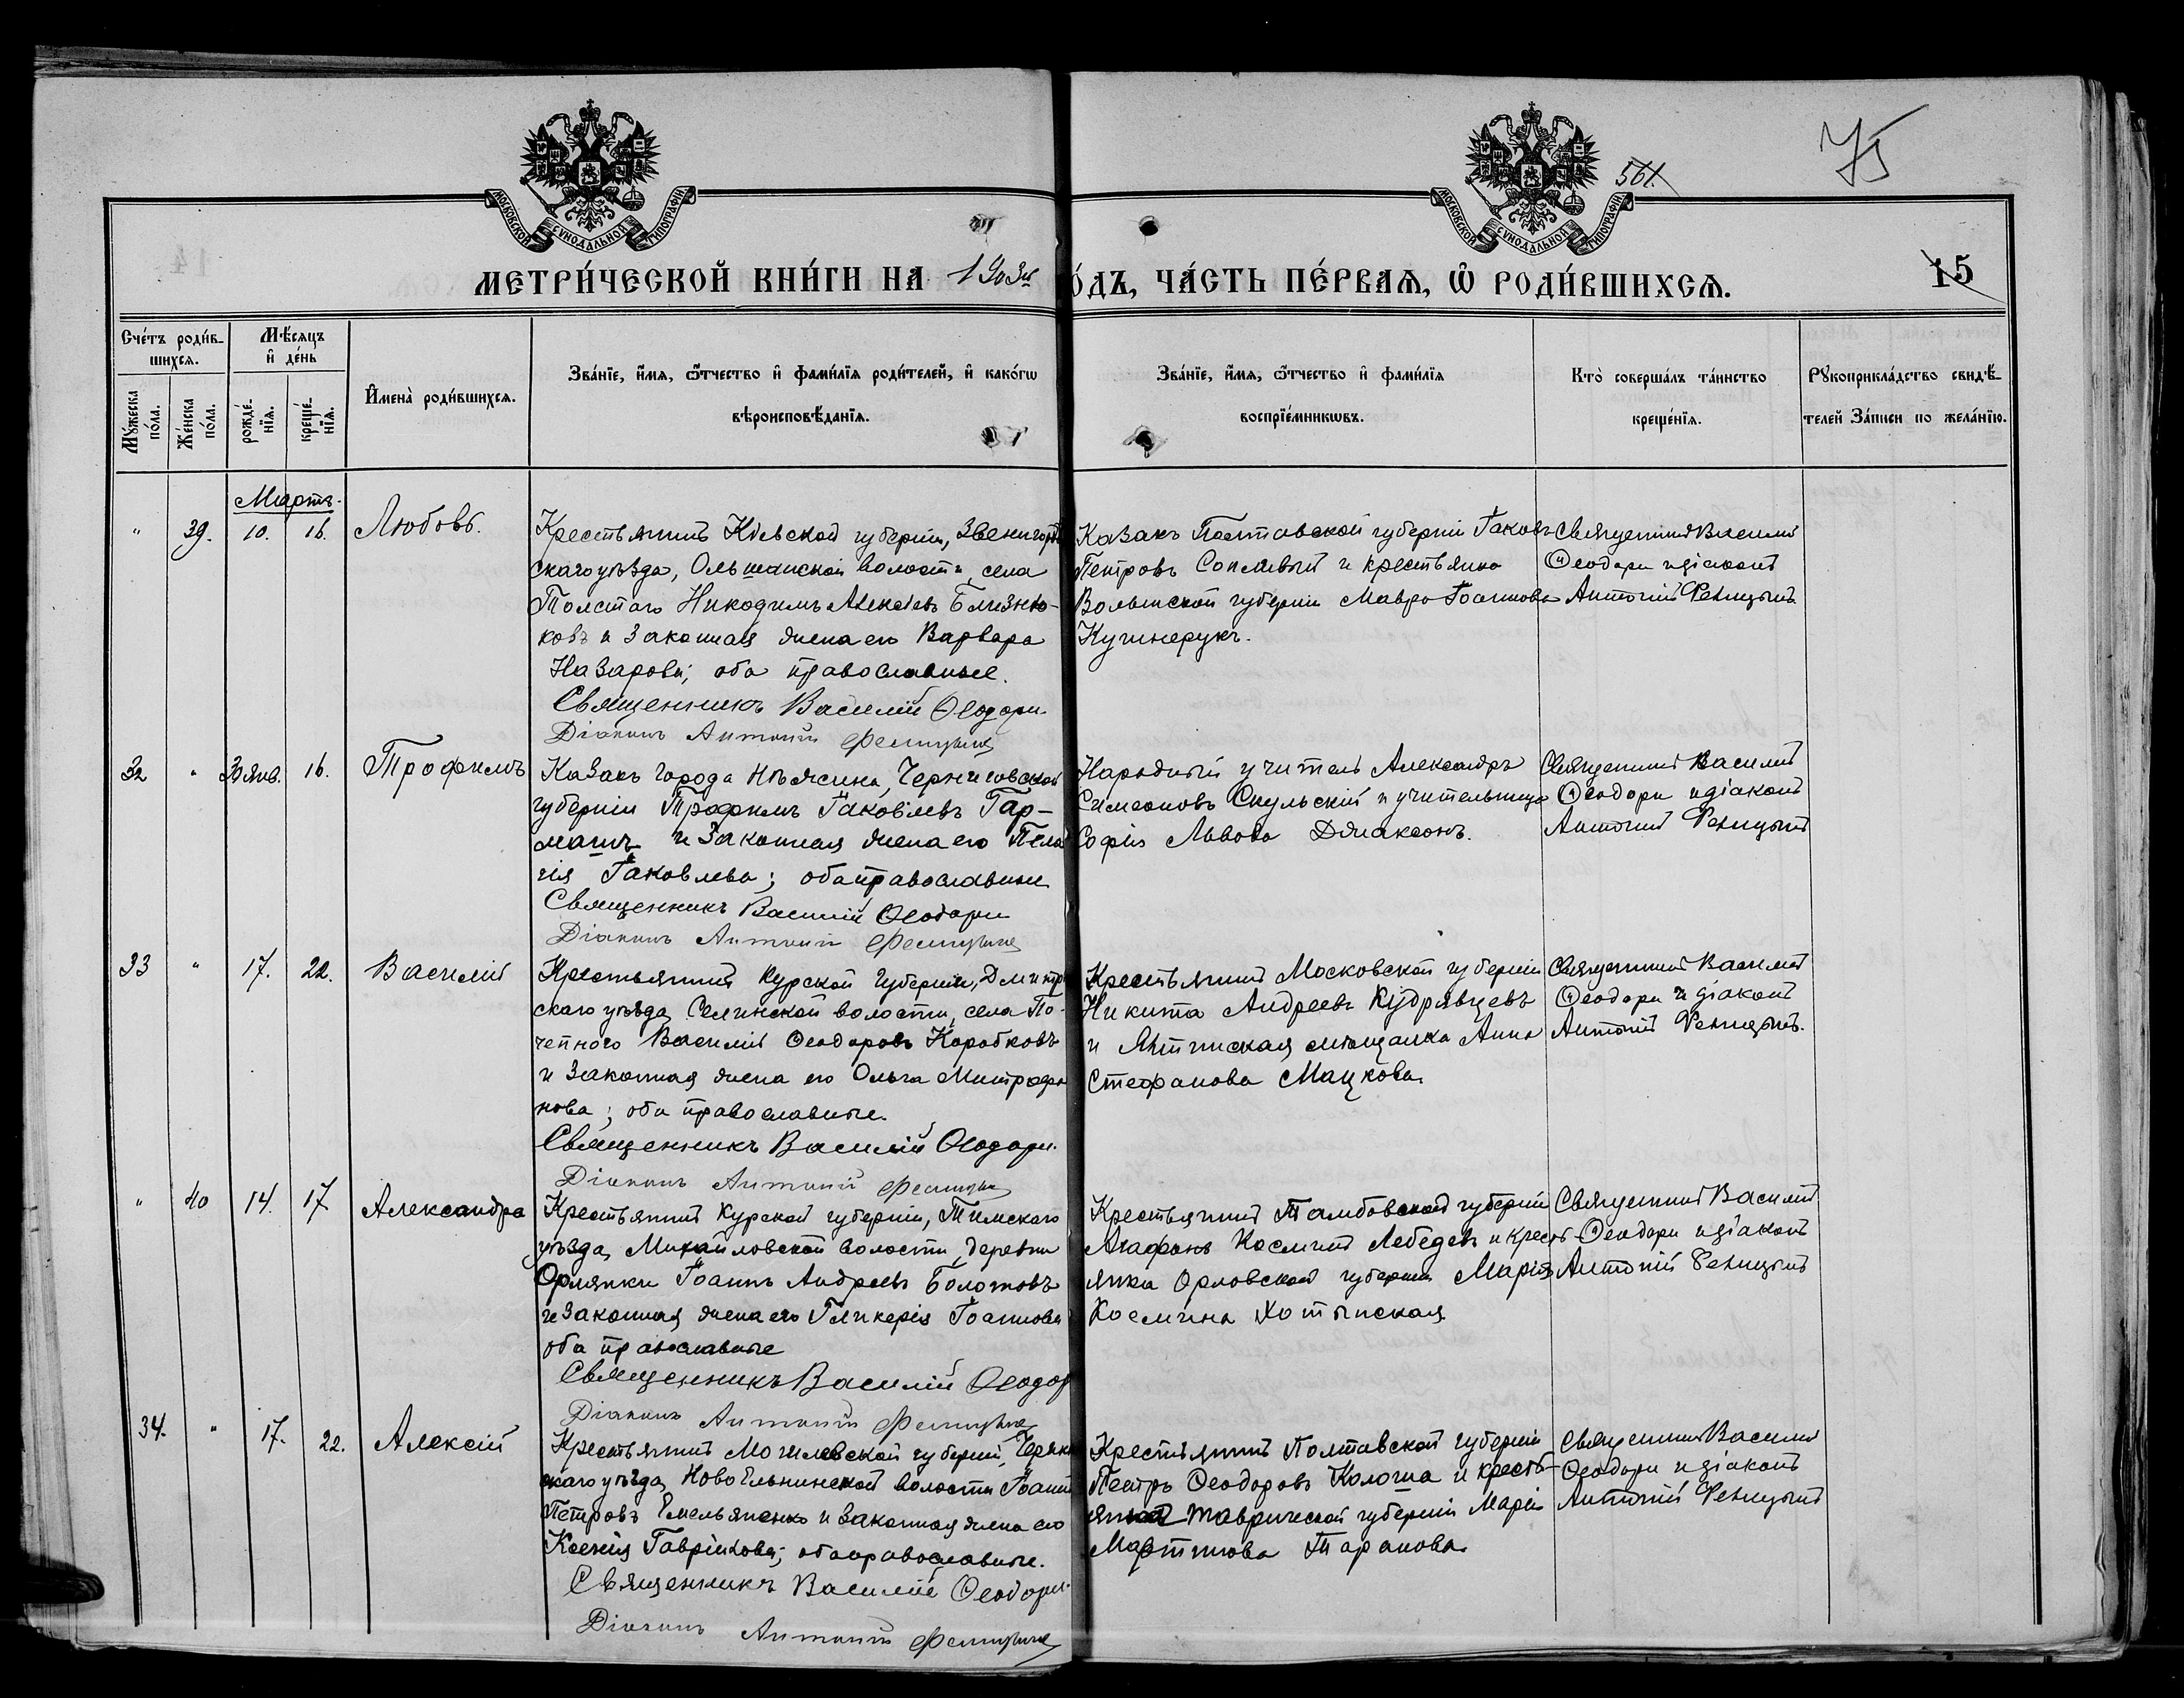 МОСКОВСКОЙ СѴНОДАЛЬНОЙ ТИПОГРАФІИ
МОСКОВСКОЙ СѴНОДАЛЬНОЙ ТИПОГРАФІИ
561.
75
МЕТРИ́ЧЕСКОЙ КНИ́ГИ НА 1903й
О́ДЪ, ЧА́СТЬ ПЕ́РВАѦ, Ѡ҃ РОДИ́ВШИХСѦ.
15
Сче́тъ роди́в-
шихсѧ.
Мѣ́сѧцъ
и҆ де́нь
Мꙋ́жеска
по́ла.
Же́нска
по́ла.
рожде́-
нїѧ.
креще́-
нїѧ.
И҆мена̀ роди́вшихсѧ.
Зва́нїе, и҆́мѧ, ѻ҆́тчество и҆ фами́лїѧ роди́телей, и҆ како́гѡ
вѣроисповѣ́данїѧ.
Зва́нїе, и҆́мѧ, ѻ҆́тчество и҆ фами́лїѧ
воспрїе́мникѡвъ.
Кто̀ соверша́лъ та́инство
креще́нїѧ.
Рꙋкоприкла́дство свидѣ́-
телей за́писи по жела́нїю.
Мартъ.
" 39. 10. 16. Любовь.
Крестьянинъ Кіевской губерніи, Звенигород
скаго уѣзда, Ольшанской волости, села
Толстаго Никодимъ Алексіевъ Близню-
ковъ и законная жена его Варвара
Назарова; оба православные.
Священникъ Василій Ѳеодори
Діаконъ Антоній
Казакъ Полтавской губерніи Іаковъ
Петровъ Сопливый и крестьянка
Волынской губерніи Мавра Іоаннова
Кушнерукъ.
Священникъ Василій
Ѳеодори и діаконъ
Антоній
32 " 30 янв. 16. Трофимъ
Казакъ города Нѣжина, Черниговской
губерніи Трофимъ Іаковлевъ Гар-
машъ и законная жена его Пела
гія Іаковлева; оба православные
Священникъ Василій Ѳеодори
Діаконъ Антоній
Народный учитель Александръ
Симеоновъ Скульскій и учительница
Софія Львова Джаксонъ.
Священникъ Василій
Ѳеодори и діаконъ
Антоній
33 " 17. 22. Василій
Крестьянинъ Курской губерніи, Дмитрі
скаго уѣзда, Селинской волости, села По-
чепного Василій Ѳеодоровъ Коробковъ
и законная жена его Ольга Митрофа
нова; оба православные.
Священникъ Василій Ѳеодори.
Діаконъ Антоній
Крестьянинъ Московской губерніи
Никита Андреевъ Кудрявцевъ
и Ялтинская мѣщанка Анна
Стефанова Мацкова.
Священникъ Василій
Ѳеодори и діаконъ
Антоній
" 40 14. 17 Александра
Крестьянинъ Курской губерніи, Тимскаго
уѣзда, Михайловской волости, деревни
Орлянки Іоаннъ Андреевъ Болотовъ
и законная жена его Гликерія Іоаннова
оба православные
Священникъ Василій Ѳеодор
Діаконъ Антоній
Крестьянинъ Тамбовской губерніи
Агафонъ Косминъ Лебедевъ и кресть-
янка Орловской губерніи Марія
Космина Хотынская
Священникъ Василій
Ѳеодори и діаконъ
Антоній
34. " 17. 22. Алексій
Крестьянинъ Могилевской губерніи, Черик
скаго уѣзда, Новоельнинской волости Іоаннъ
Петровъ Емельяненко и законная жена его
Ксенія Гавріилова; оба православные.
Священникъ Василій Ѳеодори.
Діаконъ Антоній
Крестьянинъ Полтавской губерніи
Петръ Ѳеодоровъ Колоша и кресть-
янка Таврической губерніи Марія
Мартинова Таранова
Священникъ Василій
Ѳеодори и діаконъ
Антоній